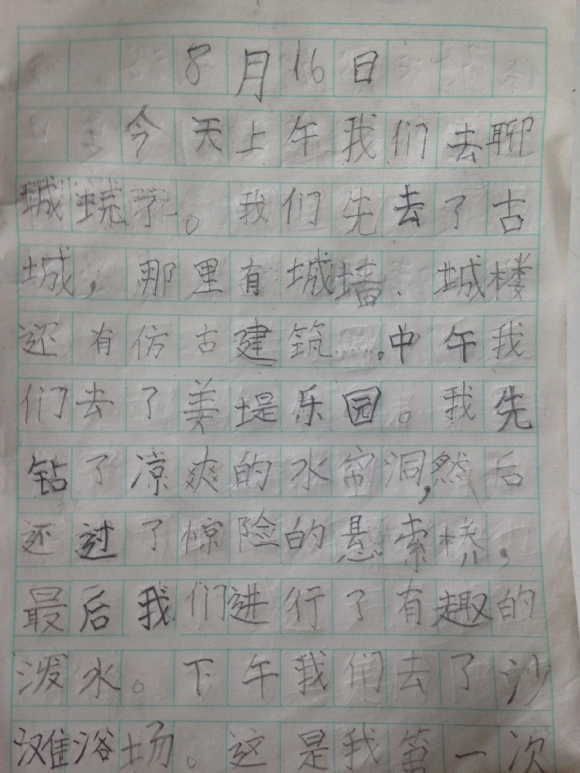 8月16日
今天上午我们去聊
城玩。我们先去了古
城，那里有城墙、城楼
还有仿古建筑……。中午我
们去了姜堤乐园。我先
钻了凉爽的水帘洞，然后
还过了惊险的悬索桥，
最后我们进行了有趣的
泼水。下午我们去了沙
滩浴场。这是我第一次